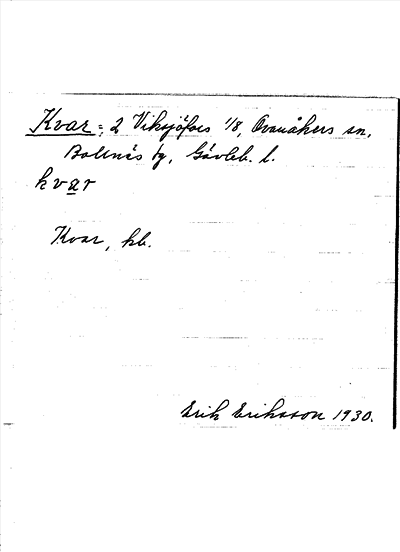 Kvar: 2 Viksjöfors 1/8, Ovanåkers sn,
Bollnäs tg, Gävleb. l.
kvar
Kvar, hb.
Erik Eriksson 1930.